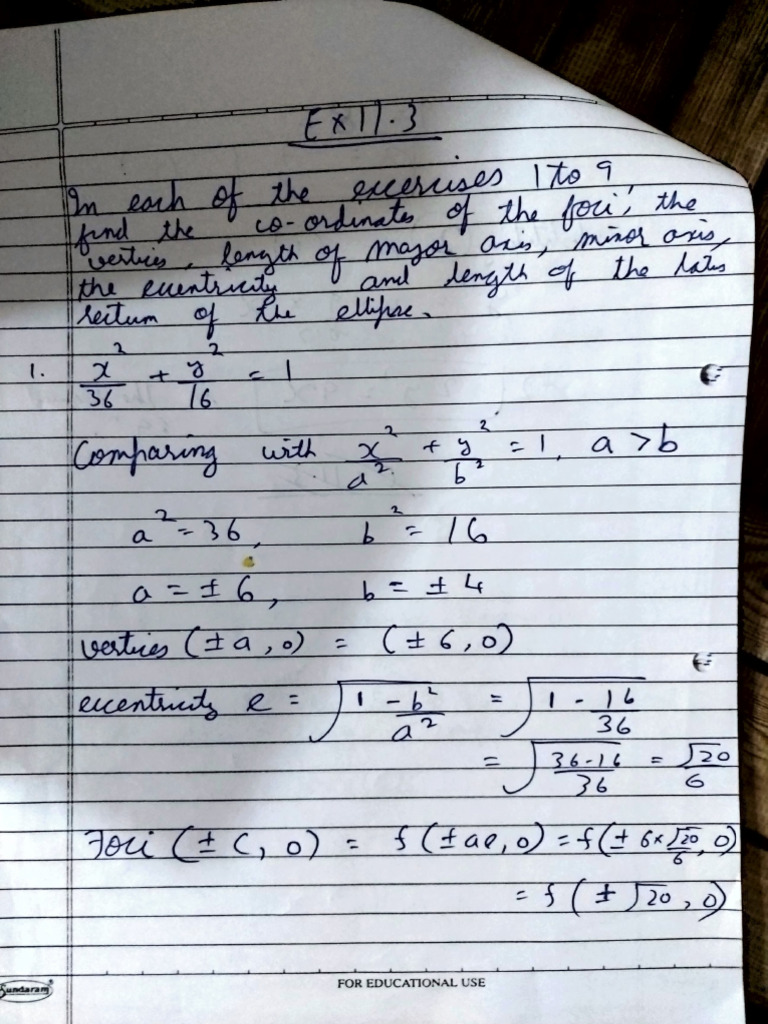 Ex 11.3
In each of the excercises 1 to 9,
find the co-ordinates of the foci, the
vertices, length of major axis, minor axis,
the eccentricity and length of the latus
rectum of the ellipse.
1. x²/36 + y²/16 = 1
Comparing with x²/a² + y²/b² = 1, a > b
a² = 36, b² = 16
a = ± 6, b = ± 4
vertices (± a, 0) = (± 6, 0)
eccentricity e = √(1 - b²/a²) = √(1 - 16/36)
= √((36-16)/36) = √20/6
Foci (± c, 0) = f (± ae, 0) = f (± 6×√20/6, 0)
= f (± √20, 0)
Sundaram FOR EDUCATIONAL USE